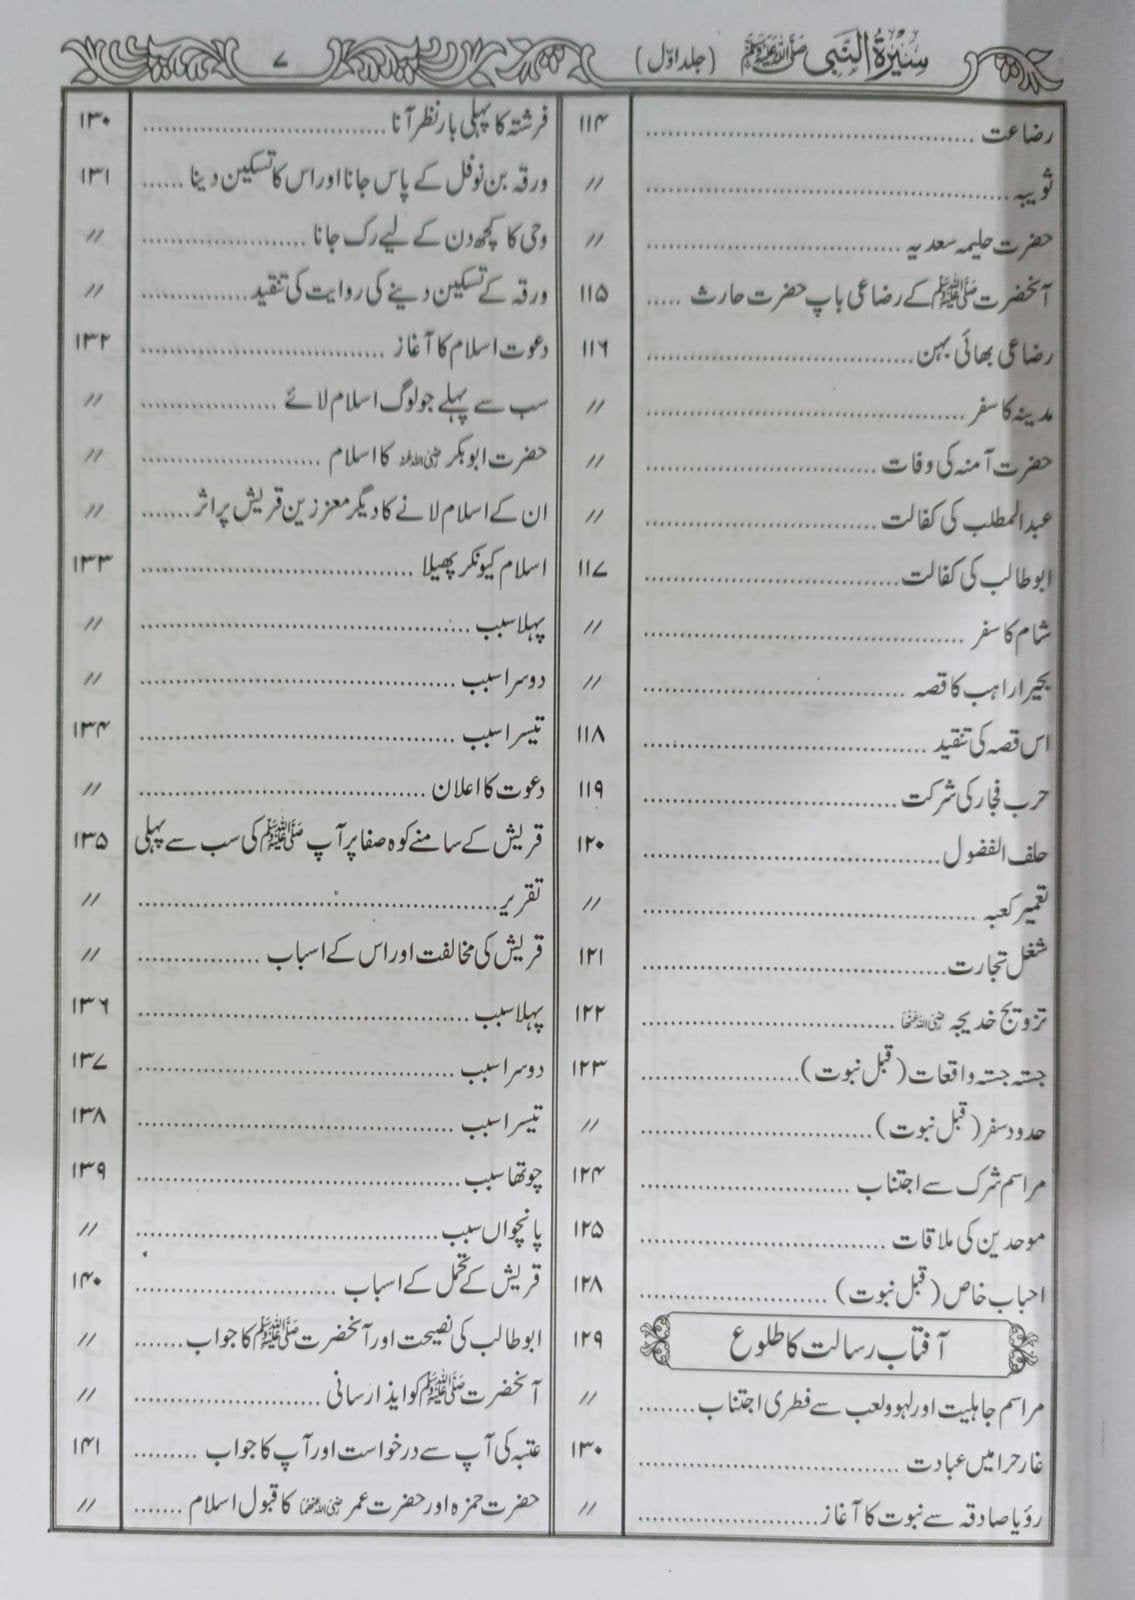 سیرۃ النبی ﷺ (جلد اوّل) ۷
رضاعت ۱۱۴
ثویبہ 〃
حضرت حلیمہ سعدیہ 〃
آنحضرت ﷺ کے رضاعی باپ حضرت حارث ۱۱۵
رضاعی بھائی بہن ۱۱۶
مدینہ کا سفر 〃
حضرت آمنہ کی وفات 〃
عبدالمطلب کی کفالت 〃
ابوطالب کی کفالت ۱۱۷
شام کا سفر 〃
بحیرا راہب کا قصہ 〃
اس قصہ کی تنقید ۱۱۸
حرب فجار کی شرکت ۱۱۹
حلف الفضول ۱۲۰
تعمیر کعبہ 〃
شغل تجارت ۱۲۱
تزویج خدیجہ رضی اللہ عنہا ۱۲۲
جستہ جستہ واقعات (قبل نبوت) ۱۲۳
حدود سفر (قبل نبوت) 〃
مراسم شرک سے اجتناب ۱۲۴
موحدین کی ملاقات ۱۲۵
احباب خاص (قبل نبوت) ۱۲۸
آفتاب رسالت کا طلوع ۱۲۹
مراسم جاہلیت اور لہو ولعب سے فطری اجتناب 〃
غار حرا میں عبادت ۱۳۰
رؤیا صادقہ سے نبوت کا آغاز 〃
فرشتہ کا پہلی بار نظر آنا ۱۳۰
ورقہ بن نوفل کے پاس جانا اور اس کا تسکین دینا ۱۳۱
وحی کا کچھ دن کے لیے رک جانا 〃
ورقہ کے تسکین دینے کی روایت کی تنقید 〃
دعوت اسلام کا آغاز ۱۳۲
سب سے پہلے جو لوگ اسلام لائے 〃
حضرت ابوبکر رضی اللہ عنہ کا اسلام 〃
ان کے اسلام لانے کا دیگر معززین قریش پر اثر 〃
اسلام کیونکر پھیلا ۱۳۳
پہلا سبب 〃
دوسرا سبب 〃
تیسرا سبب ۱۳۴
دعوت کا اعلان 〃
قریش کے سامنے کوہ صفا پر آپ ﷺ کی سب سے پہلی ۱۳۵
تقریر 〃
قریش کی مخالفت اور اس کے اسباب 〃
پہلا سبب ۱۳۶
دوسرا سبب ۱۳۷
تیسرا سبب ۱۳۸
چوتھا سبب ۱۳۹
پانچواں سبب 〃
قریش کے تحمل کے اسباب ۱۴۰
ابوطالب کی نصیحت اور آنحضرت ﷺ کا جواب 〃
آنحضرت ﷺ کو ایذا رسانی 〃
عتبہ کی آپ سے درخواست اور آپ کا جواب ۱۴۱
حضرت حمزہ اور حضرت عمر رضی اللہ عنہما کا قبول اسلام 〃